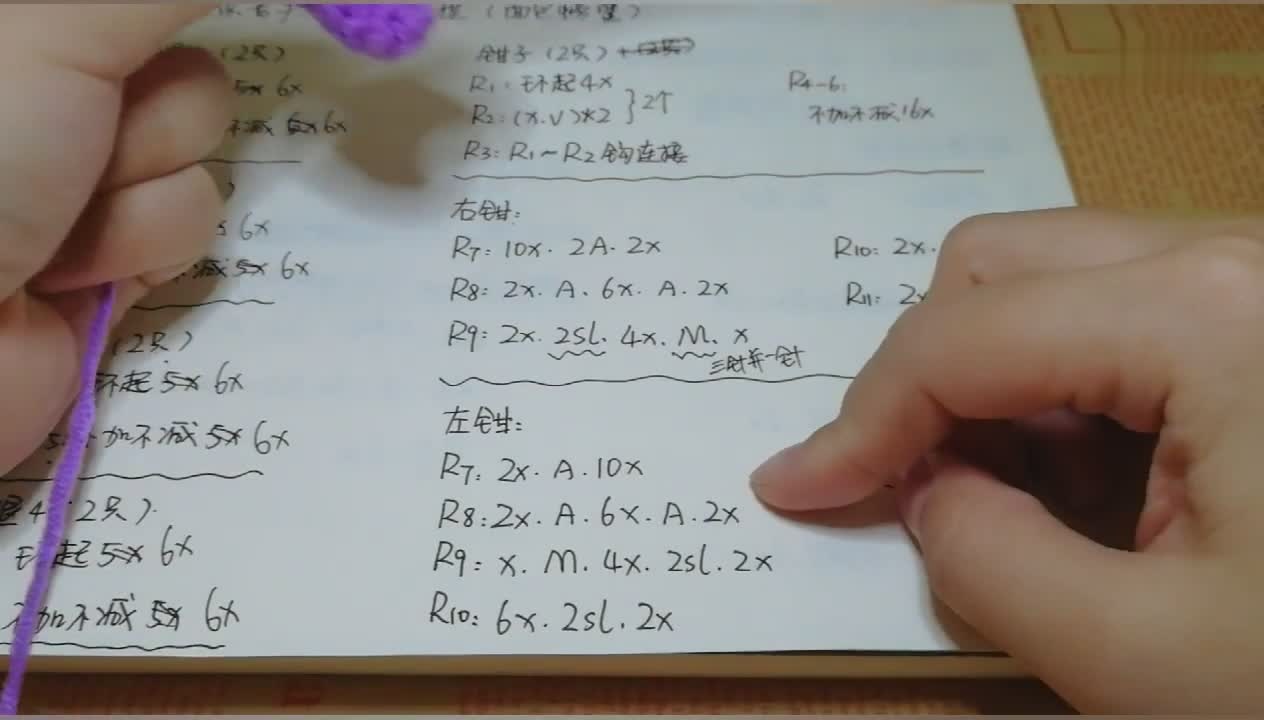 (2只)
5x 6x
不减 5x 6x
6x
减 5x 6x
(2只)
环起 5x 6x
加不减 5x 6x
4 2只).
环起 5x 6x
不加不减 5x 6x
钳子(2只)
R1: 环起4x
R2: (x.V)*2 }2个
R3: R1~R2钩连接
R4-6:
不加不减16x
右钳:
R7: 10x. 2A. 2x
R8: 2x. A. 6x. A. 2x
R9: 2x. 2sl. 4x. M. x
三针并一针
R10: 2x.
R11: 2x
左钳:
R7: 2x. A. 10x
R8: 2x. A. 6x. A. 2x
R9: x. M. 4x. 2sl. 2x
R10: 6x. 2sl. 2x